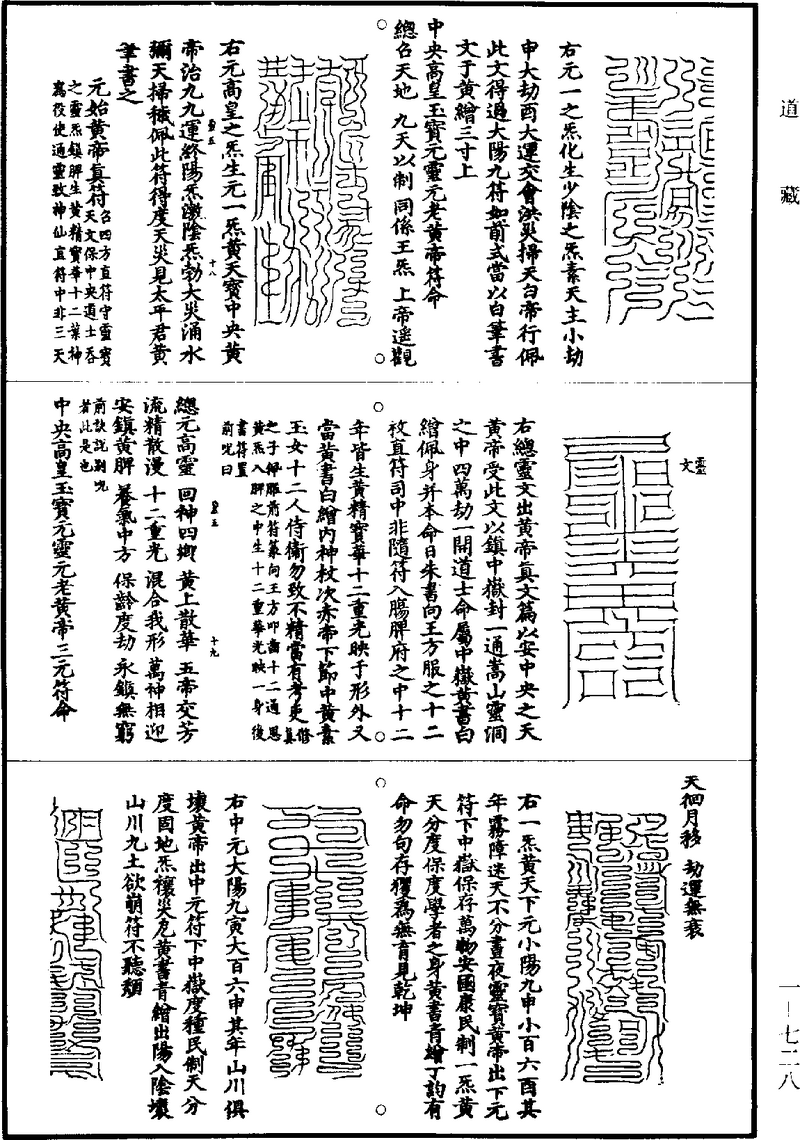 道藏
右元一之炁化生少陰之炁素天主小劫
申大劫酉大運交會洪災掃天白帝行佩
此文得過大陽九符如前式當以白筆書
文于黃繒三寸上
中央高皇玉寶元靈元老黃帝符命
總召天地 九天以制 同係王炁 上帝遥觀
右元高皇之炁生元一炁黃天寶中央黃
帝治九九運終陽炁激陰炁勃大災涌水
彌天掃穢佩此符得度天災見太平君黃
筆書之
元始黃帝真符召四方直符守靈寶
天文保中央道士吞
之靈炁鎮脾生黃精寶華十二葉神
爲役使通靈致神仙直符中非三天
十八
靈文
右總靈文出黃帝真文篇以安中央之天
黃帝受此文以鎮中嶽封一通嵩山靈洞
之中四萬劫一開道士命屬中嶽黃書白
繒佩身并本命日朱書向王方服之十二
枚直符司中非隨符入膓脾府之中十二
年皆生黃精寶華十二重光映于形外又
當黃書白繒內神杖次赤帝下節中黃素
玉女十二人侍衛勿致不精當有考吏修真
之子掃服前符篆向王方叩齒十二通思
黃炁入脾之中生十二重華光映一身後
書符置
前呪曰
總元高靈 回神四鄉 黃上散華 五帝交芳
流精散漫 十二重光 混合我形 萬神相迎
安鎮黃脾 養氣中方 保齡度劫 永鎮無窮
前訣說別呪
者此是也
中央高皇玉寶元靈元老黃帝三元符命
十九
天徊月移 劫運無衰
右一炁黃天下元小陽九申小百六酉其
年霧障迷天不分晝夜靈寶黃帝出下元
符下中嶽保存萬物安國康民制一炁黃
天分度保度學者之身黃書青繒丁訽有
命勿句存穫爲無育見乾坤
右中元大陽九寅大百六申其年山川俱
壞黃帝出中元符下中嶽度種民制天分
度固地炁禳災危黃書青繒出陽入陰壞
山川九土欲崩符不聽頽
一—七二八